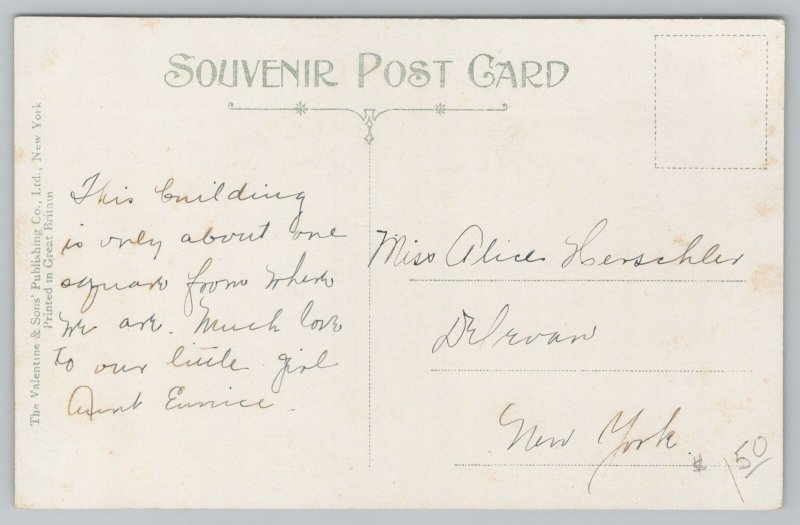 SOUVENIR POST CARD
The Valentine & Sons' Publishing Co., Ltd., New York
Printed in Great Britain
This building
is only about one
square from where
we are. Much love
to our little girl
Aunt Eunice.
Miss Alice Herschler
Delevan
New York
$ 50